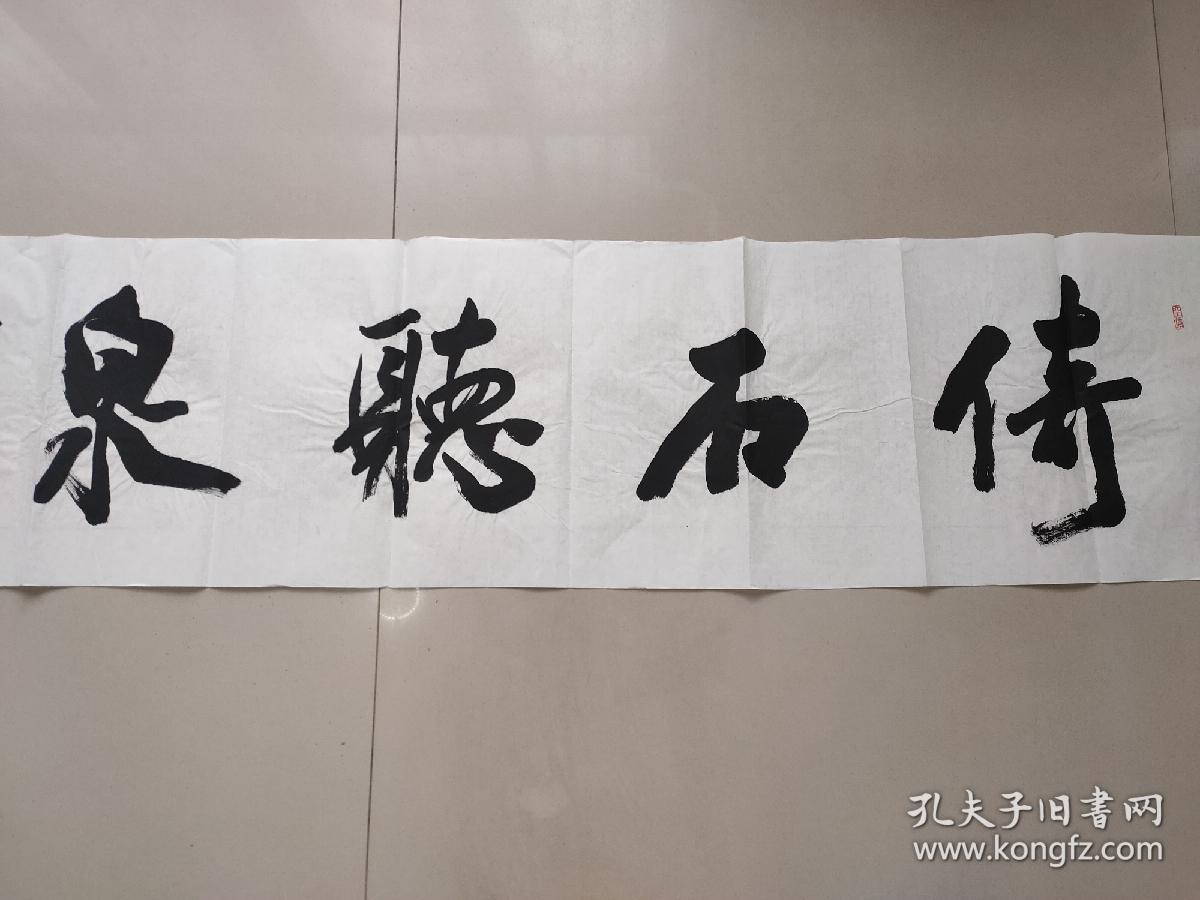 倚石聽泉
孔夫子旧書网
www.kongfz.com